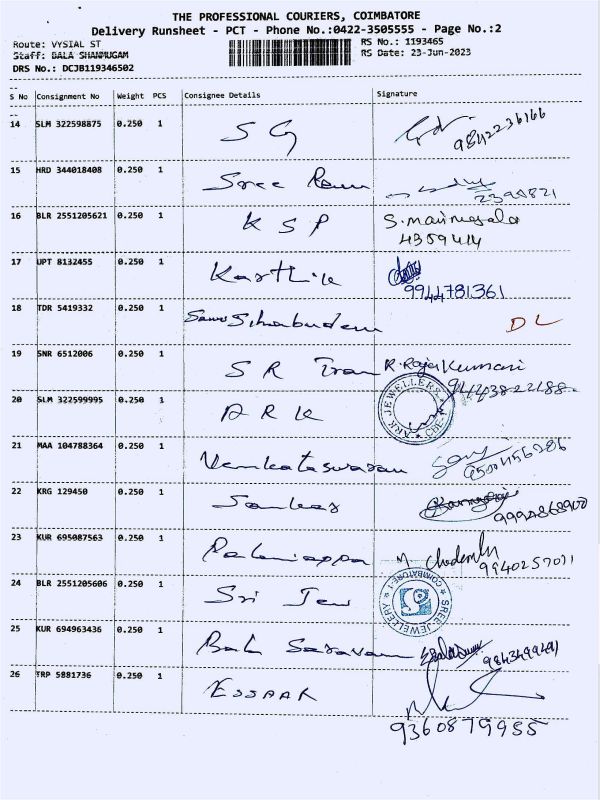 THE PROFESSIONAL COURIERS, COIMBATORE
Delivery Runsheet - PCT - Phone No.:0422-3505555 - Page No.:2
Route: VYSIAL ST RS No.: 1193465
Staff: BALA SHANMUGAM RS Date: 23-Jun-2023
DRS No.: DCJB119346502
S No Consignment No Weight PCS Consignee Details Signature
14 SLM 322598875 0.250 1 S G 9842236166
15 HRD 344018408 0.250 1 Sree Ram 2390821
16 BLR 2551205621 0.250 1 K S P S. 
4359414
17 UPT 8132455 0.250 1 Karthik
9944781361
18 TDR 5419332 0.250 1 DL
19 SNR 6512006 0.250 1 S R Tran R. Raja Kumari
94443822188
20 SLM 322599995 0.250 1 A R K ARK JEWELLERS
21 MAA 104788364 0.250 1 Venkataswaran
9500456286
22 KRG 129450 0.250 1 Sankar
9994868900
23 KUR 695087563 0.250 1 Palaniappa
9940257071
24 BLR 2551205606 0.250 1 Sri Jew SREE JEWELLERY COIMBATORE-1
25 KUR 694963436 0.250 1 Bala Saravan 9843499491
26 TRP 5881736 0.250 1 ESSAAR
9360879955